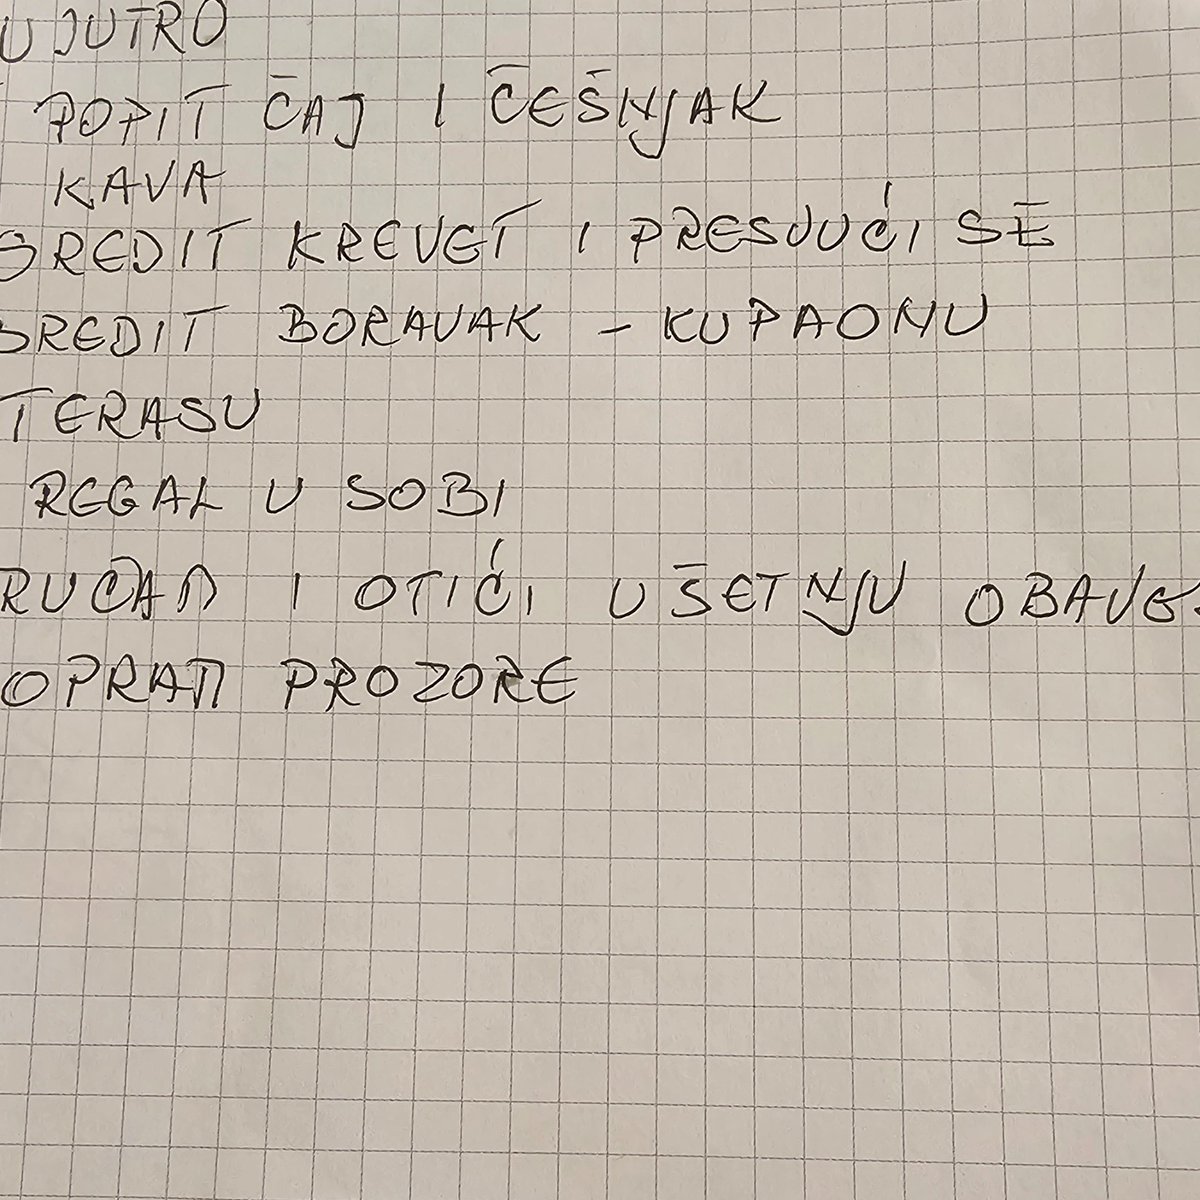 UJUTRO
POPIT ČAJ I ČEŠNJAK
KAVA
SREDIT KREVET I PRESVUĆI SE
SREDIT BORAVAK - KUPAONU
TERASU
REGAL U SOBI
RUČATI I OTIĆI U ŠETNJU OBAVE
OPRATI PROZORE